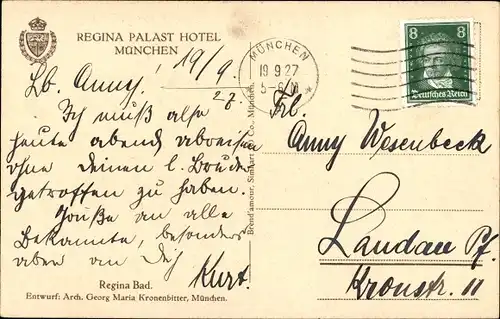 REGINA PALAST HOTEL
MÜNCHEN
19/9.
27.
Lb. Anny!
Ich muß also
heute abend abreisen
ohne Deinen l. Bruder
getroffen zu haben.
Grüße an alle
Bekannte, besonders
aber an Dich
Kurt.
Regina Bad.
Entwurf: Arch. Georg Maria Kronenbitter, München.
MÜNCHEN
19 9.27
8
8
Deutsches Reich
Frl.
Anny Wesenbeck
Landau Pf.
Kronstr. 11